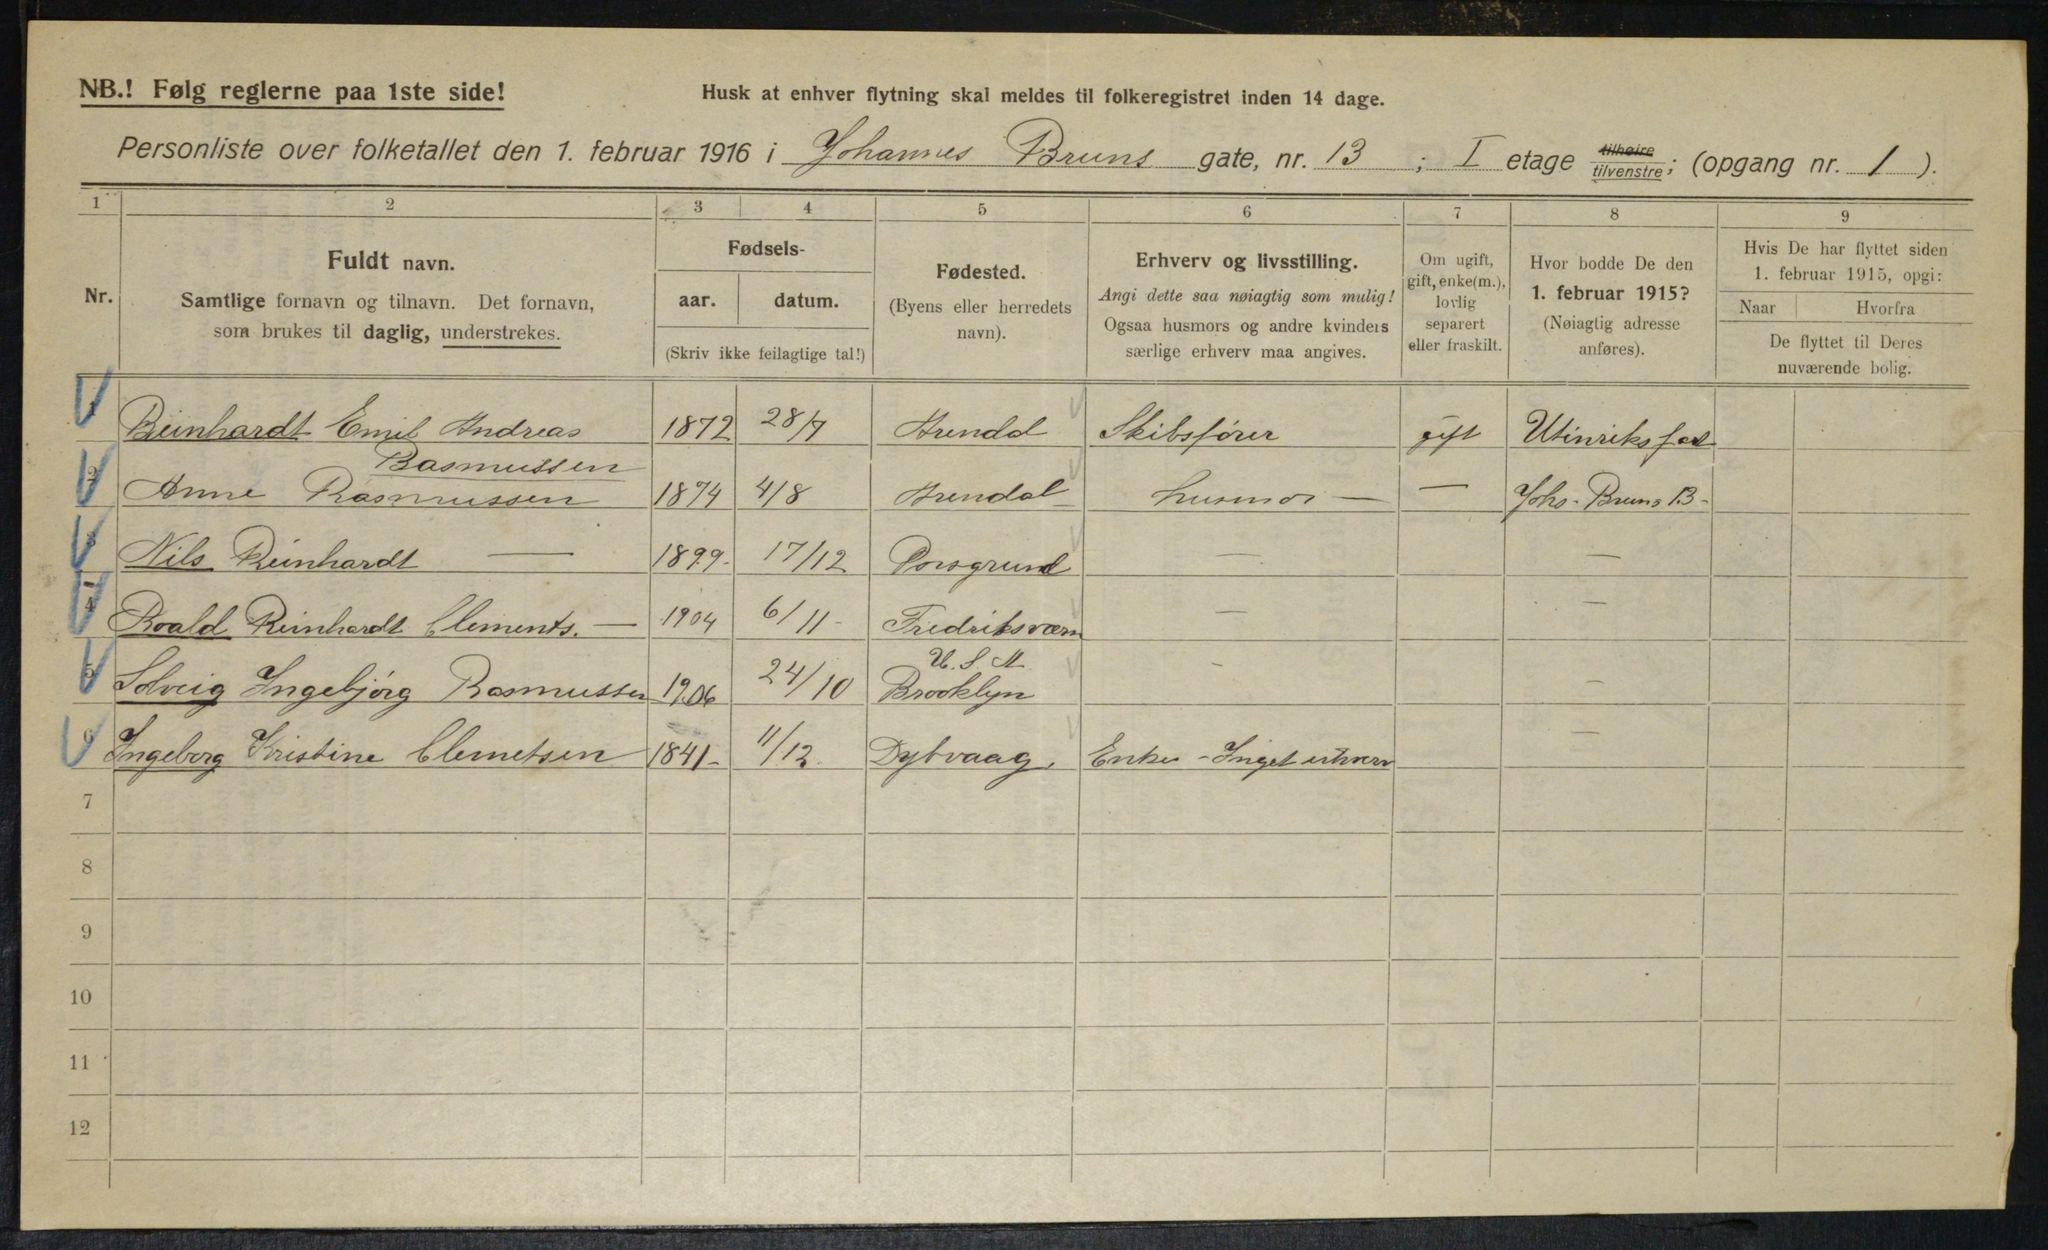 NB.! Følg reglerne paa 1ste side!
Husk at enhver flytning skal meldes til folkeregistret inden 14 dage.
Personliste over folketallet den 1. februar 1916 i Johannes Bruns gate, nr. 13 ; I etage tilhøire tilvenstre; (opgang nr. 1 ).
1 2 3 4 5 6 7 8 9
Nr.
Fuldt navn.
Samtlige fornavn og tilnavn. Det fornavn,
som brukes til daglig, understrekes.
Fødsels-
aar. datum.
(Skriv ikke feilagtige tal!)
Fødested.
(Byens eller herredets
navn).
Erhverv og livsstilling.
Angi dette saa nøiagtig som mulig!
Ogsaa husmors og andre kvinders
særlige erhverv maa angives.
Om ugift,
gift, enke(m.),
lovlig
separert
eller fraskilt.
Hvor bodde De den
1. februar 1915?
(Nøiagtig adresse
anføres).
Hvis De har flyttet siden
1. februar 1915, opgi:
Naar Hvorfra
De flyttet til Deres
nuværende bolig.
1 Reinhardt Emil Andreas 1872 28/7 Arendal Skibsfører gift Utinriksfart
Rasmussen
2 Anne Rasmussen 1874 4/8 Arendal husmor — — Johs. Bruns 13-
3 Nils Reinhardt — 1899 17/12 Porsgrund — —
4 Roald Reinhardt Clements. — 1904 6/11 Fredriksværn — —
U. S. A.
5 Solveig Ingebjørg Rasmussen 1906 24/10 Brooklyn - —
6 Ingeborg Kristine Clemetsen 1841- 11/12 Dybvaag, Enke - Inget erhverv —
7
8
9
10
11
12